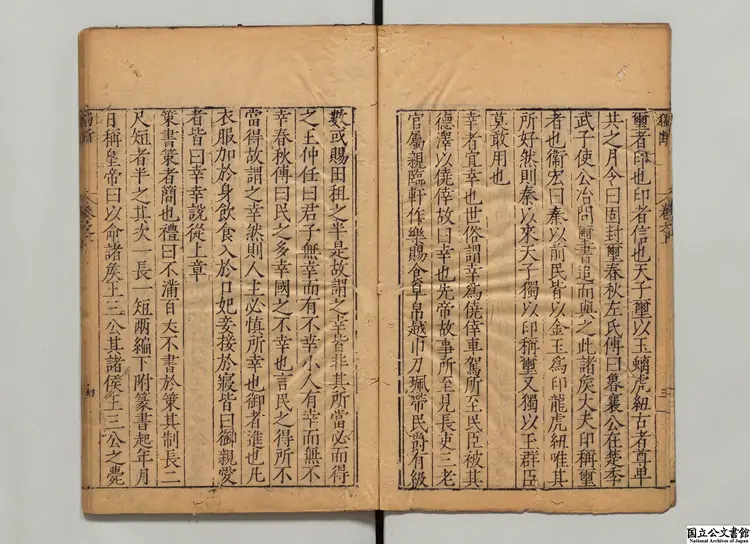 獨斷
卷之上
三
璽者印也印者信也天子璽以玉螭虎紐古者尊卑
共之月令曰固封璽春秋左氏傳曰魯襄公在楚季
武子使公冶問璽書追而與之此諸侯大夫印稱璽
者也衛宏曰秦以前民皆以金玉爲印龍虎紐唯其
所好然則秦以來天子獨以印稱璽又獨以玉群臣
莫敢用也
幸者宜幸也世俗謂幸爲僥倖車駕所至民臣被其
德澤以僥倖故曰幸也先帝故事所至見長吏三老
官屬親臨軒作樂賜食皁帛越巾刀珮帶民爵有級
數或賜田租之半是故謂之幸皆非其所當必而得
之王仲任曰君子無幸而有不幸小人有幸而無不
幸春秋傳曰民之多幸國之不幸也言民之得所不
當得故謂之幸然則人主必慎所幸也御者進也凡
衣服加於身飲食入於口妃妾接於寢皆曰御親愛
者皆曰幸幸說從上章
策書策者簡也禮曰不滿百丈不書於策其制長二
尺短者半之其次一長一短兩編下附篆書起年月
日稱皇帝曰以命諸侯王三公其諸侯王三公之薨
國立公文書館
National Archives of Japan